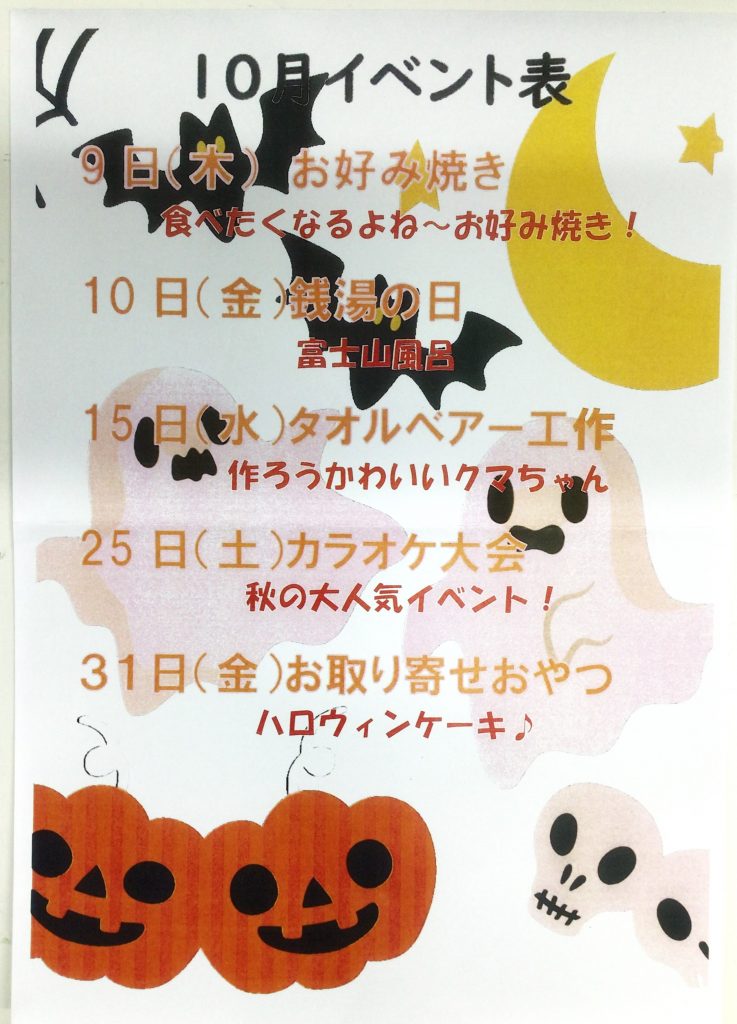 10月イベント表
9日(木) お好み焼き
食べたくなるよね～お好み焼き！
10日(金)銭湯の日
富士山風呂
15日(水)タオルベアー工作
作ろうかわいいクマちゃん
25日(土)カラオケ大会
秋の大人気イベント！
31日(金)お取り寄せおやつ
ハロウィンケーキ♪